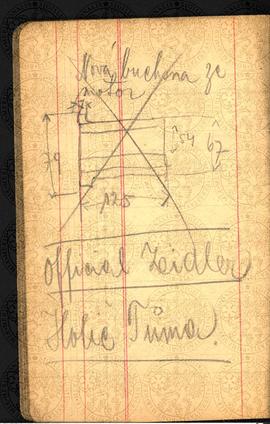 Nová buchsna ze
motor
54 67
79
125
Official Zeidler
Holič Tůma.